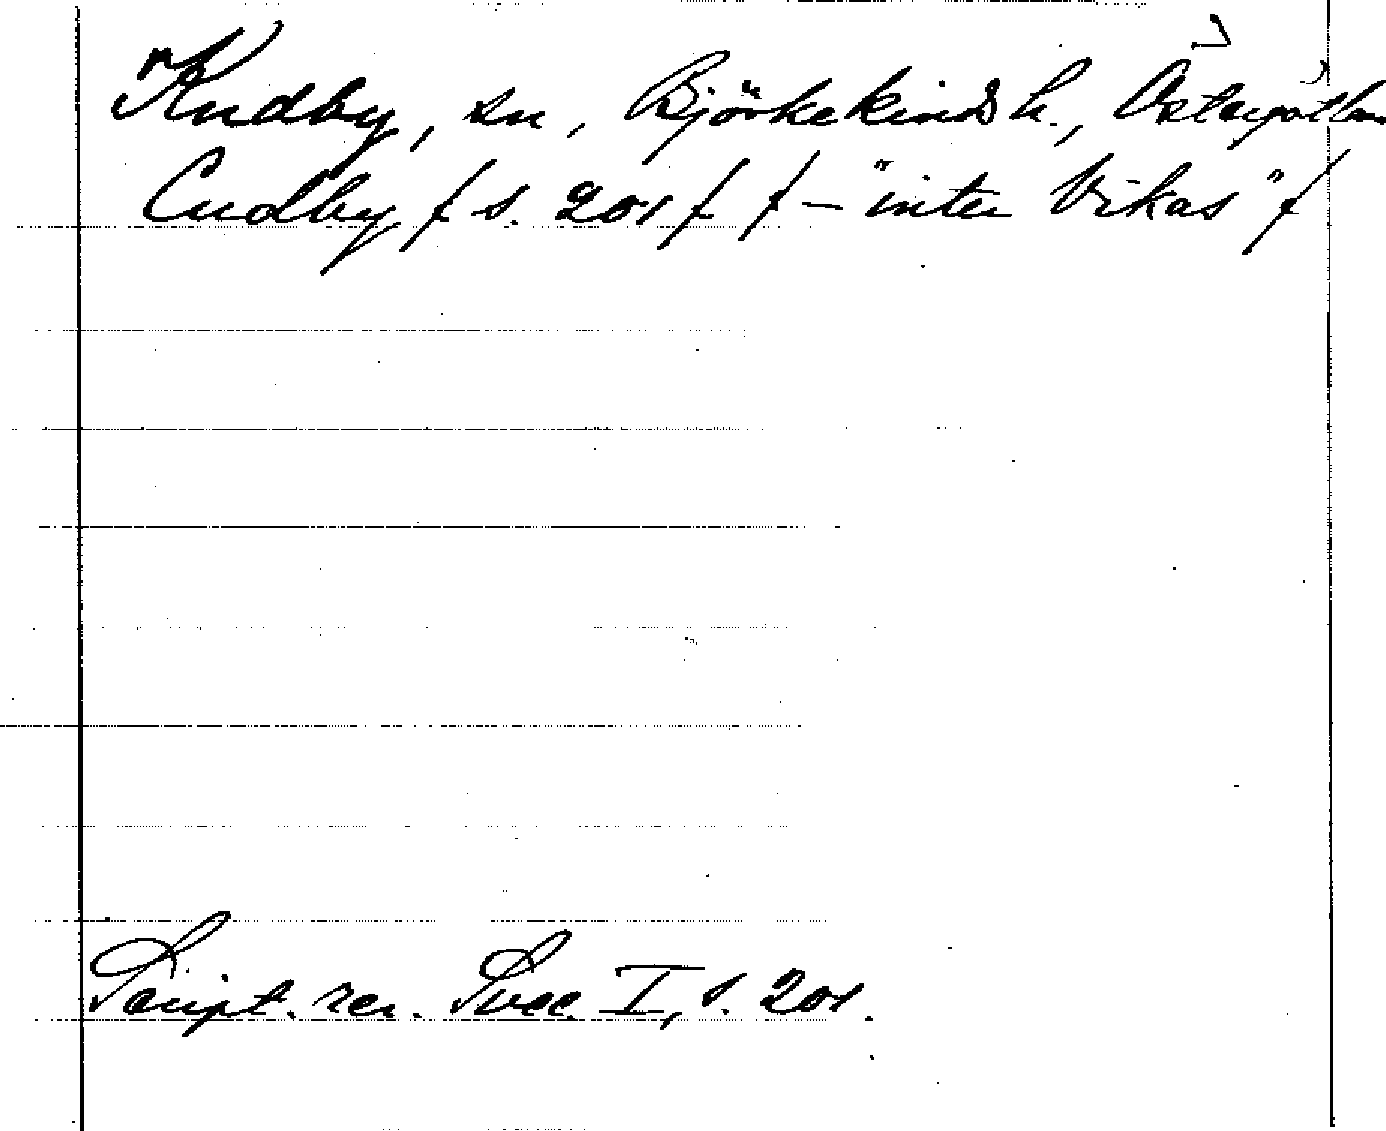 Kudby, sn, Björkekinds h., Östergötlan
Cudby / s. 201 / / – "inter Vikas" /
Script. rer. Svec. I, s. 201.